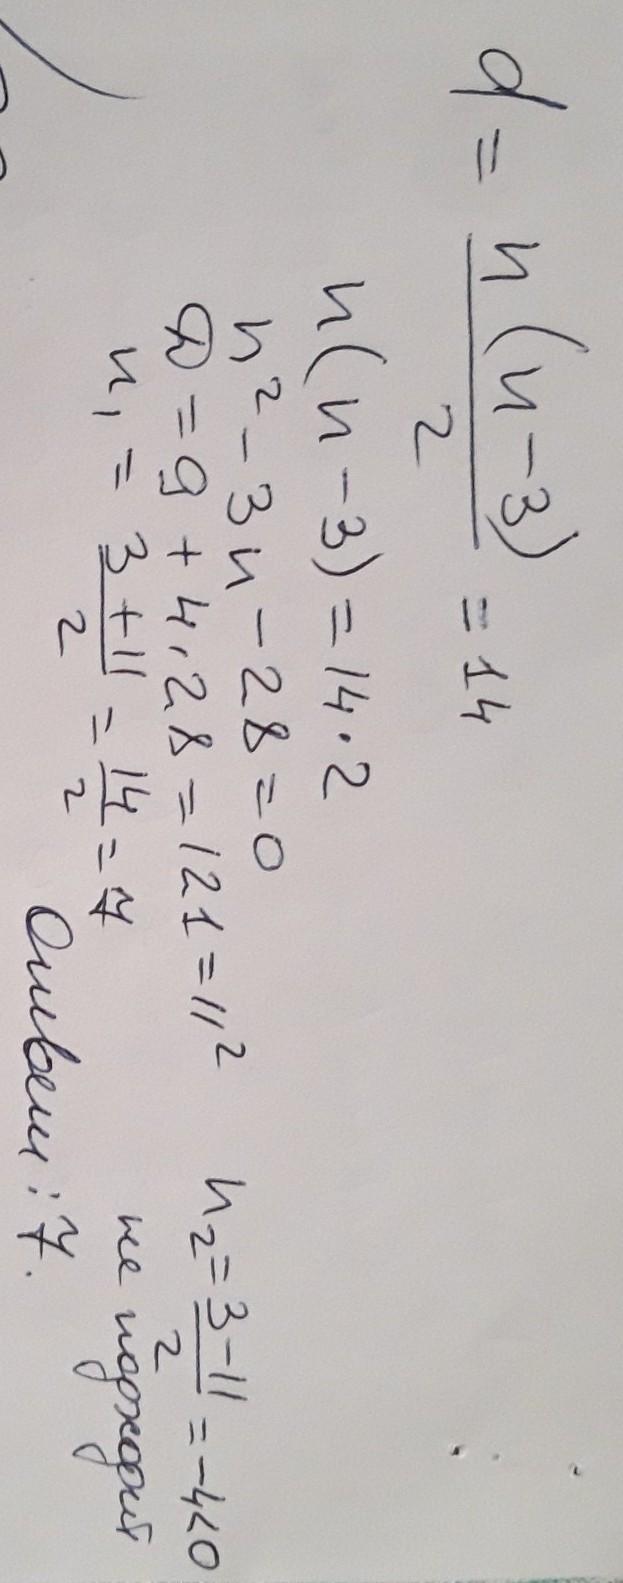 d = n(n-3)/2 = 14
n(n-3) = 14·2
n² - 3n - 28 = 0
D = 9 + 4·28 = 121 = 11²
n₁ = (3+11)/2 = 14/2 = 7
n₂ = (3-11)/2 = -4<0
не подходит
Ответ: 7.